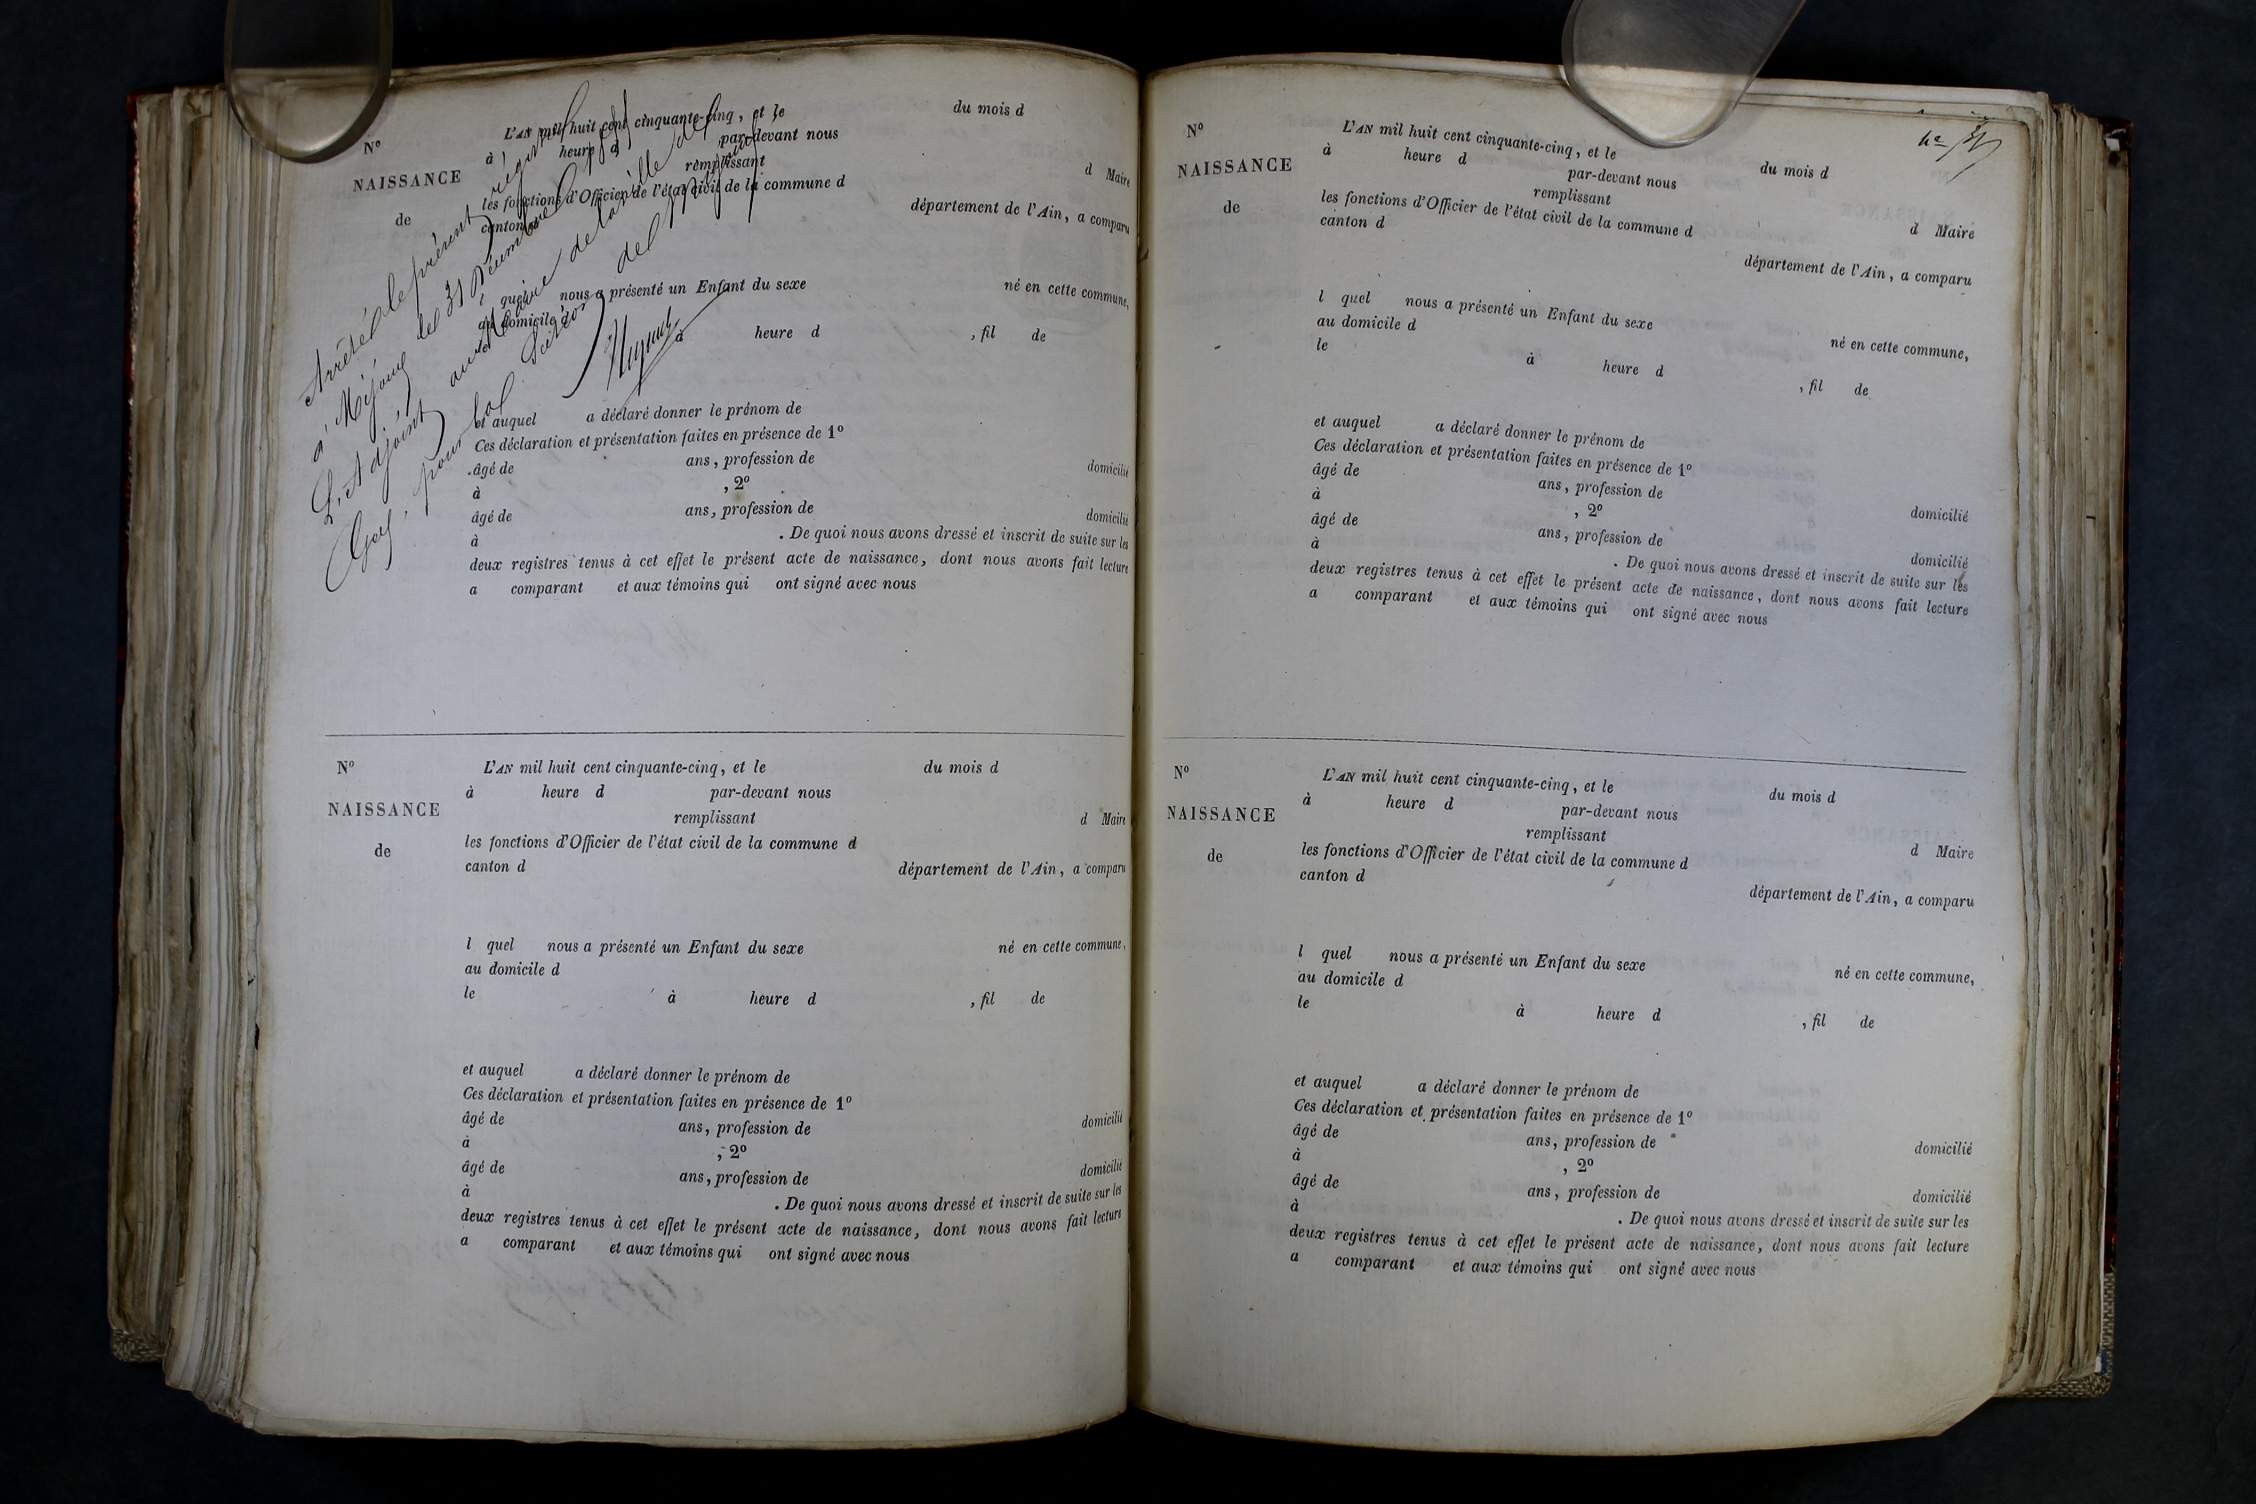 Nº
NAISSANCE
de
L'AN mil huit cent cinquante-cinq, et le du mois d
à heure d par-devant nous
remplissant d Maire
les fonctions d'Officier de l'état civil de la commune d
canton d département de l'Ain, a comparu
l quel nous a présenté un Enfant du sexe né en cette commune,
au domicile d
à heure d , fil de
et auquel a déclaré donner le prénom de
Ces déclaration et présentation faites en présence de 1º
âgé de ans, profession de domicilié
à , 2º
âgé de ans, profession de domicilié
à . De quoi nous avons dressé et inscrit de suite sur les
deux registres tenus à cet effet le présent acte de naissance, dont nous avons fait lecture
a comparant et aux témoins qui ont signé avec nous
Arrêté le présent régistre
le 31 Décembre
L'Adjoint au Maire de la ville de
Gex, pour
Nº
NAISSANCE
de
L'AN mil huit cent cinquante-cinq, et le du mois d
à heure d par-devant nous
remplissant d Maire
les fonctions d'Officier de l'état civil de la commune d
canton d département de l'Ain, a comparu
l quel nous a présenté un Enfant du sexe né en cette commune,
au domicile d
le à heure d , fil de
et auquel a déclaré donner le prénom de
Ces déclaration et présentation faites en présence de 1º
âgé de ans, profession de domicilié
à , 2º
âgé de ans, profession de domicilié
à . De quoi nous avons dressé et inscrit de suite sur les
deux registres tenus à cet effet le présent acte de naissance, dont nous avons fait lecture
a comparant et aux témoins qui ont signé avec nous
Nº
NAISSANCE
de
L'AN mil huit cent cinquante-cinq, et le du mois d
à heure d par-devant nous
remplissant d Maire
les fonctions d'Officier de l'état civil de la commune d
canton d département de l'Ain, a comparu
l quel nous a présenté un Enfant du sexe né en cette commune,
au domicile d
le à heure d , fil de
et auquel a déclaré donner le prénom de
Ces déclaration et présentation faites en présence de 1º
âgé de ans, profession de domicilié
à , 2º
âgé de ans, profession de domicilié
à . De quoi nous avons dressé et inscrit de suite sur les
deux registres tenus à cet effet le présent acte de naissance, dont nous avons fait lecture
a comparant et aux témoins qui ont signé avec nous
Nº
NAISSANCE
de
L'AN mil huit cent cinquante-cinq, et le du mois d
à heure d par-devant nous
remplissant d Maire
les fonctions d'Officier de l'état civil de la commune d
canton d département de l'Ain, a comparu
l quel nous a présenté un Enfant du sexe né en cette commune,
au domicile d
le à heure d , fil de
et auquel a déclaré donner le prénom de
Ces déclaration et présentation faites en présence de 1º
âgé de ans, profession de domicilié
à , 2º
âgé de ans, profession de domicilié
à . De quoi nous avons dressé et inscrit de suite sur les
deux registres tenus à cet effet le présent acte de naissance, dont nous avons fait lecture
a comparant et aux témoins qui ont signé avec nous